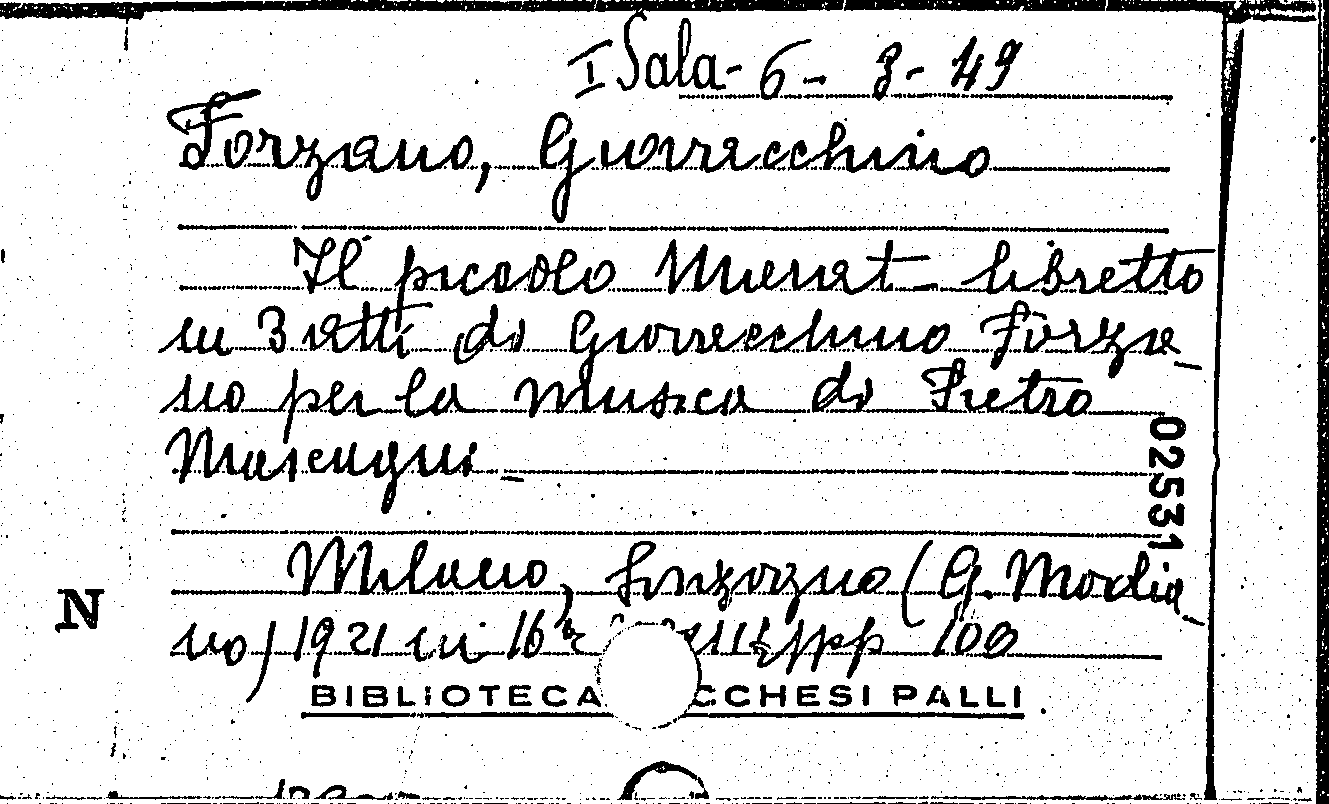 I Sala - 6 - 3 - 49
Forzano, Giovacchino
Il piccolo Marat - libretto
in 3 atti di Giovacchino Forza-
no per la musica di Pietro
Mascagni -
02531
Milano, Sonzogno (G. Modia-
N
no) 1921 in 16° pp 100
BIBLIOTECA CCHESI PALLI